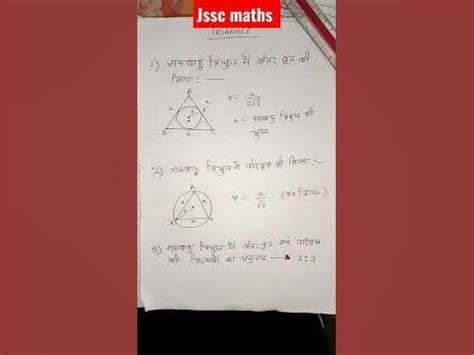 Jssc maths
TRIANGLE
1) समबाहु त्रिभुज में अंतः वृत की
त्रिज्या : —
A
a
a
r
B
a
C
r = a/2√3
a = समबाहु त्रिभुज की
भुजा
2) समबाहु त्रिभुज में परिवृत की त्रिज्या :—
A
r = a/√3
3) समबाहु त्रिभुज में अंतः वृत एवं परिवृत
की त्रिज्याओं का अनुपात → 1:2